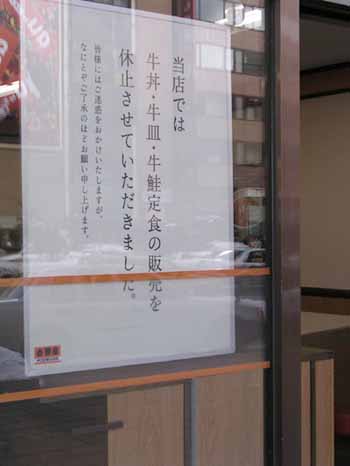 当店では
牛丼・牛皿・牛鮭定食の販売を
休止させていただきました。
皆様にはご迷惑をおかけいたしますが、
なにとぞご了承のほどお願い申し上げます。
吉野家